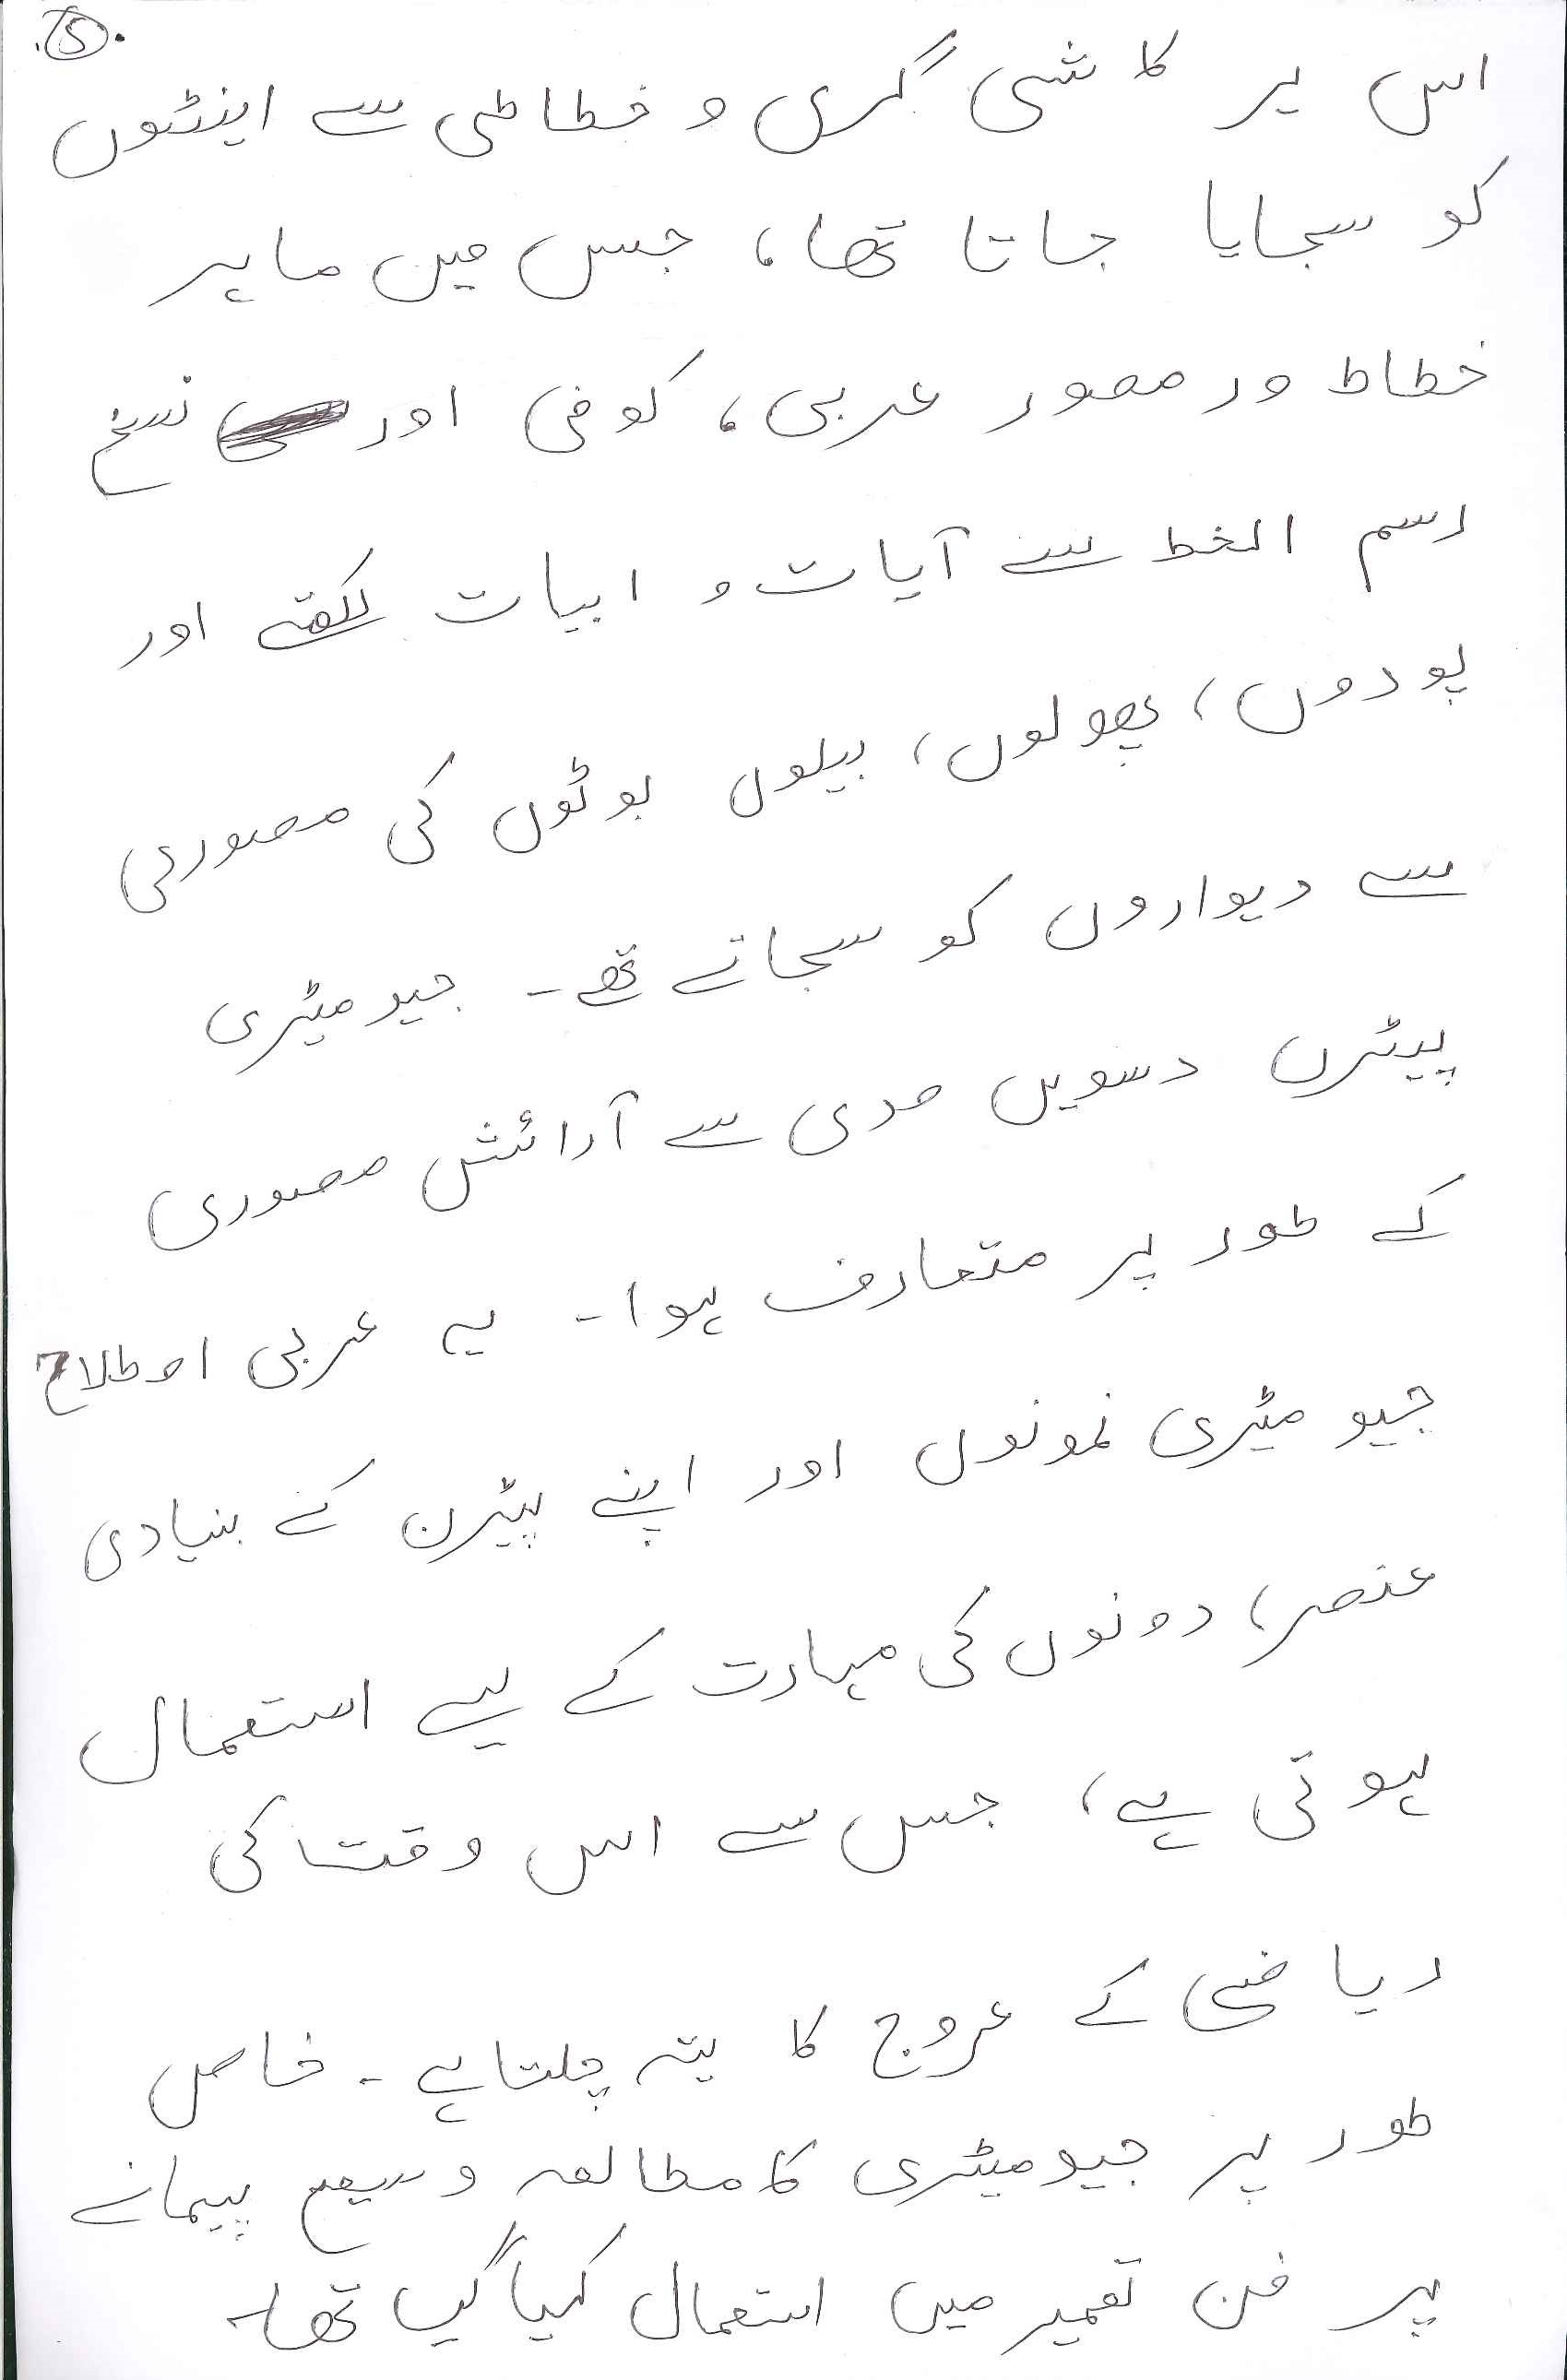 5
اس پر کاشی گری و خطاطی سے اینٹوں
کو سجایا جاتا تھا، جس میں ماہر
خطاط ور مصور عربی، کوفی اور نسخ
رسم الخط سے آیات و ابیات لکھتے اور
پودوں، پھولوں، بیلوں بوٹوں کی مصوری
سے دیواروں کو سجاتے تھے۔ جیومیٹری
پیٹرن دسویں صدی سے آرائش مصوری
کے طور پر متعارف ہوا۔ یہ عربی اصطلاح
جیومیٹری نمونوں اور اپنے پیٹرن کے بنیادی
عنصر، دونوں کی مہارت کے لیے استعمال
ہوتی ہے، جس سے اس وقت کی
ریاضی کے عروج کا پتہ چلتا ہے۔ خاص
طور پر جیومیٹری کا مطالعہ وسیع پیمانے
پر فن تعمیر میں استعمال کیا گیا تھا۔